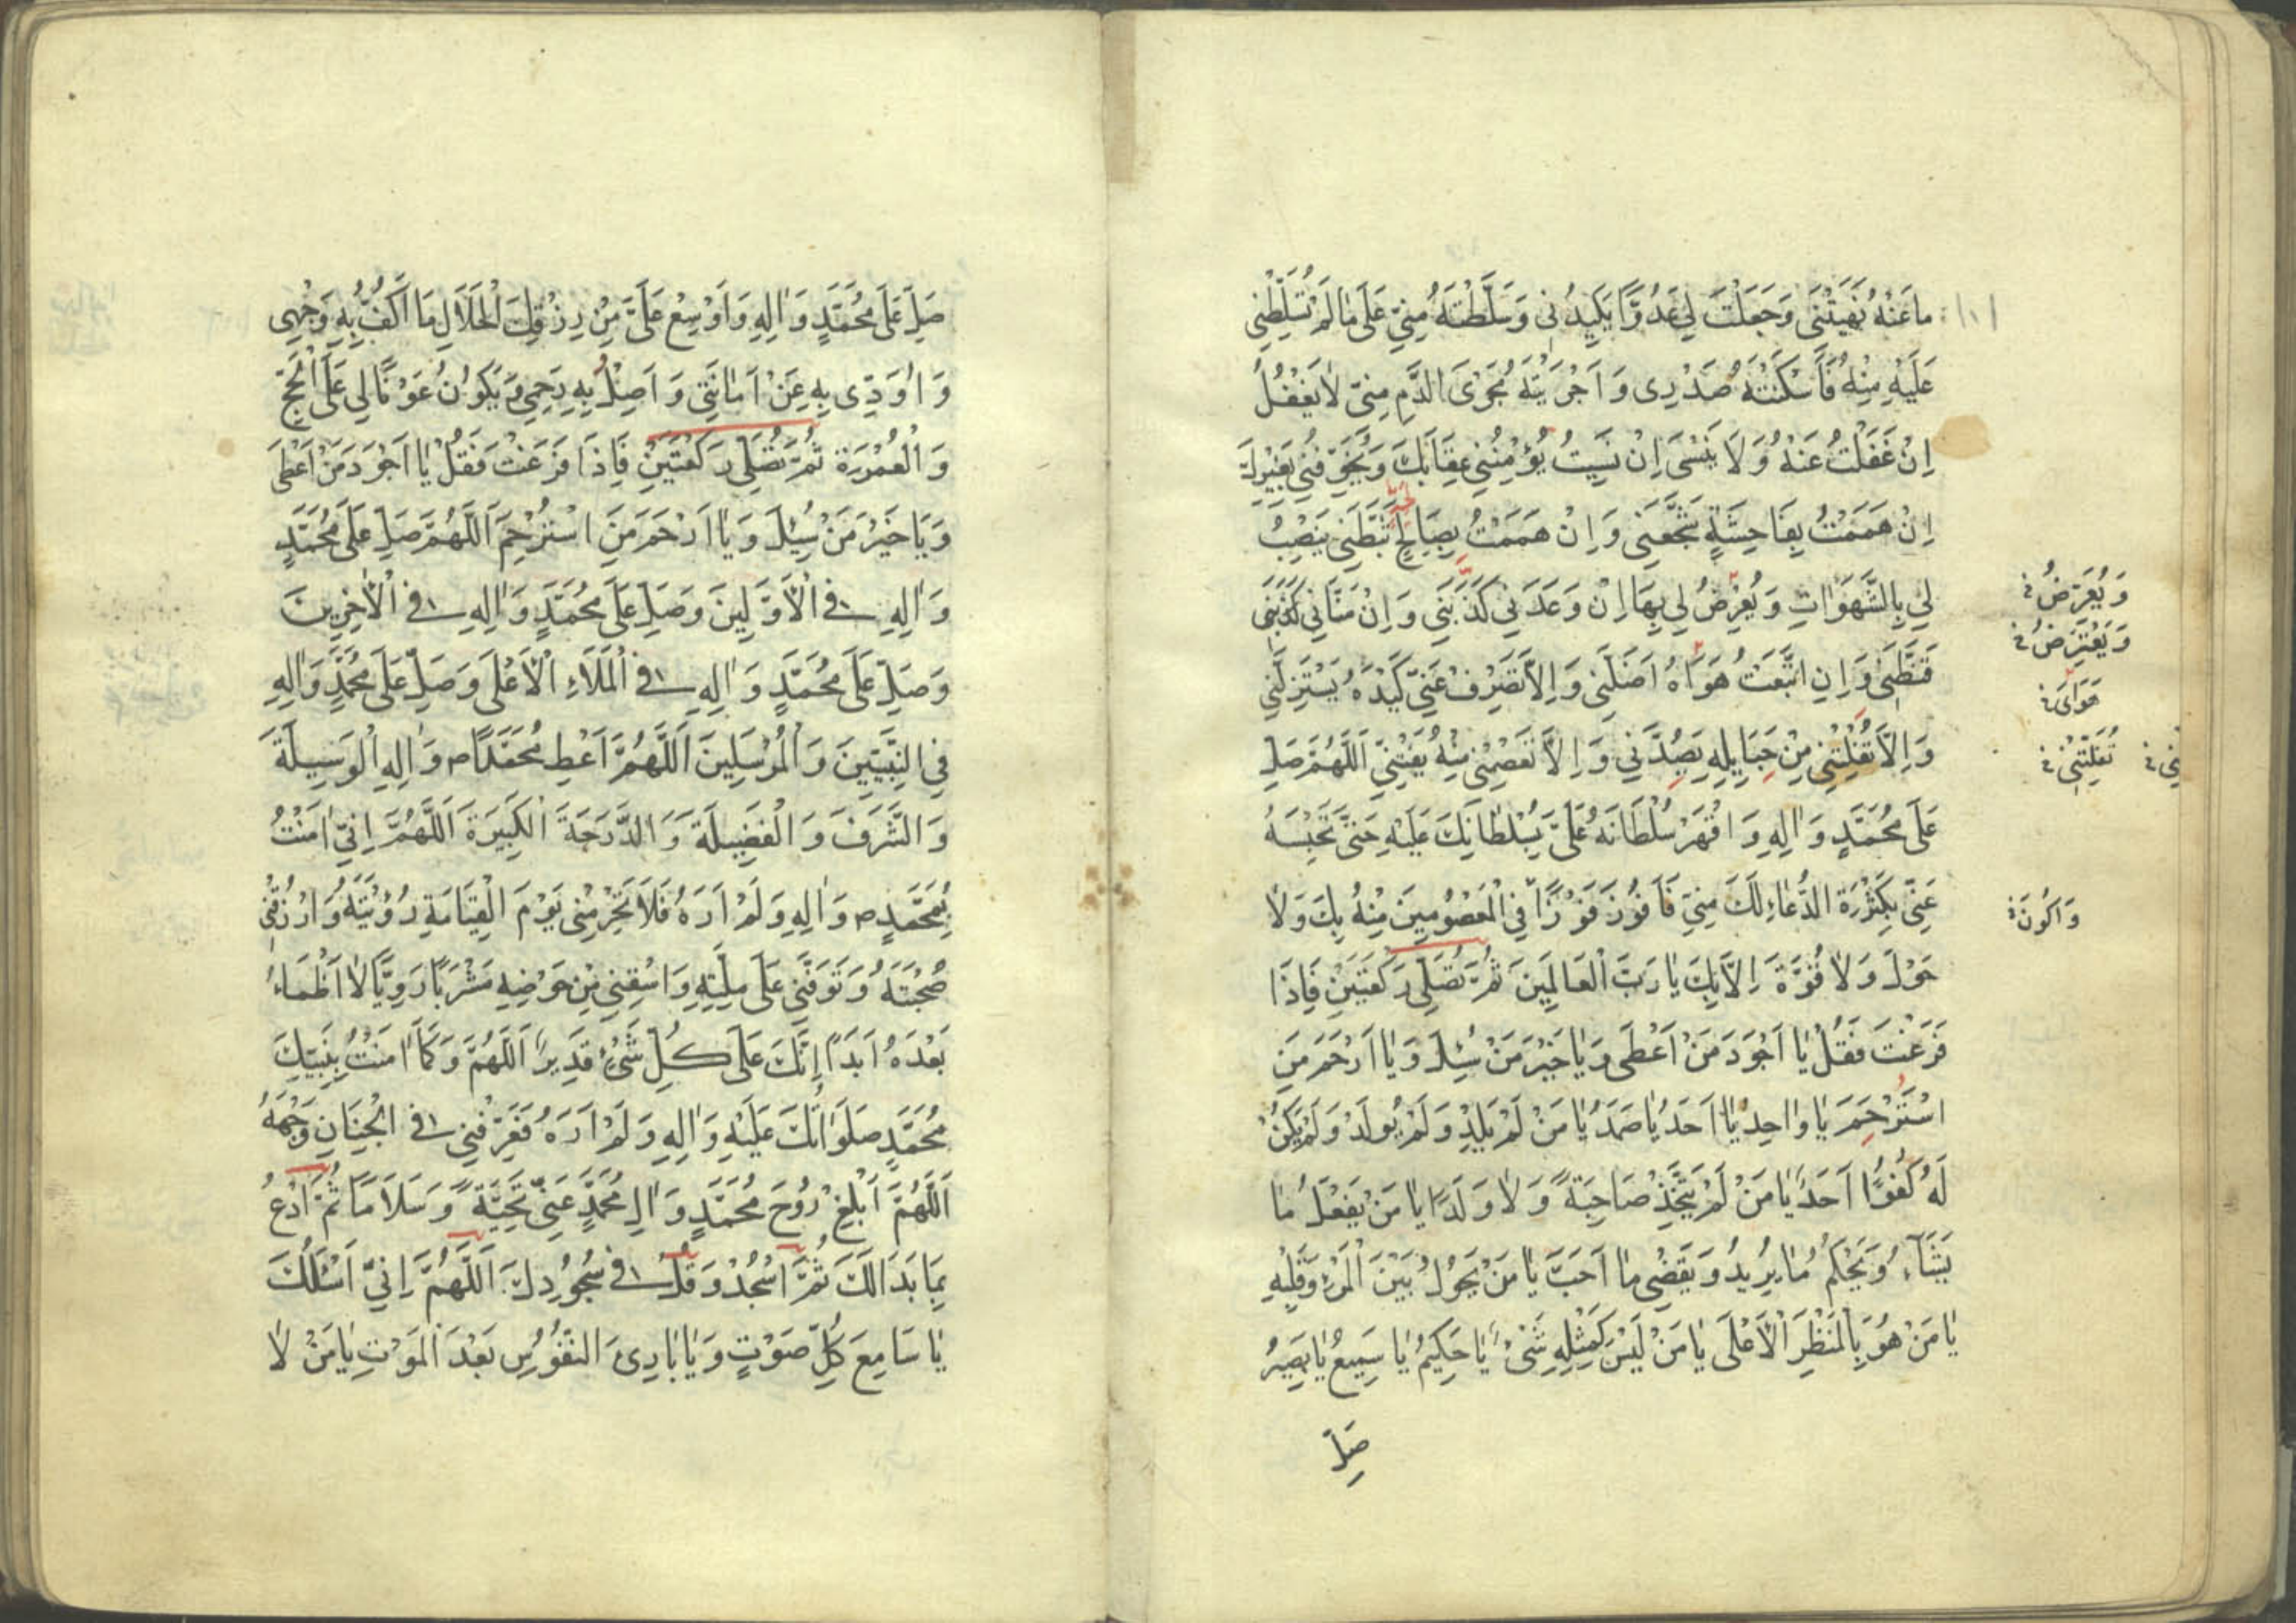 ما عَنْهُ نَهَيْتَنِي وَجَعَلْتَ لِي عَدُوًّا يَكِيدُنِي وَسَلَّطْتَهُ مِنِّي عَلَى مَا لَمْ تُسَلِّطْنِي
عَلَيْهِ مِنْهُ فَأَسْكَنْتَهُ صَدْرِي وَاَجْرَيْتَهُ مَجْرَى الدَّمِ مِنِّي لا يَغْفُلُ
اِنْ غَفَلْتُ عَنْهُ وَلَا يَنْسَى اِنْ نَسِيتُ يُؤْمِنُنِي عِقَابَكَ وَيُخَوِّفُنِي بِغَيْرِكَ
اِنْ هَمَمْتُ بِفَاحِشَةٍ شَجَّعَنِي وَاِنْ هَمَمْتُ بِصَالِحٍ ثَبَّطَنِي يَنْصِبُ
لِي بِالشَّهَوَاتِ وَيُعَرِّضُ لِي بِهَا اِنْ وَعَدَنِي كَذَبَنِي وَاِنْ مَنَّانِي
قَنَّطَنِي وَاِنِ اتَّبَعْتُ هَوَاهُ اَضَلَّنِي وَاِلَّا تَصْرِفْ عَنِّي كَيْدَهُ يَسْتَزِلَّنِي
وَاِلَّا تُفْلِتْنِي مِنْ حَبَايِلِهِ يَصُدَّنِي وَاِلَّا تَعْصِمْنِي مِنْهُ يَفْتِنِّي اَللّهُمَّ صَلِّ
عَلَى مُحَمَّدٍ وَالِهِ وَاقْهَرْ سُلْطَانَهُ عَلَيَّ بِسُلْطَانِكَ عَلَيْهِ حَتَّى تَحْبِسَهُ
عَنِّي بِكَثْرَةِ الدُّعَاءِ لَكَ مِنِّي فَاَفُوزَ فَوْزًا فِي الْمَعْصُومِينَ مِنْهُ بِكَ وَلا
حَوْلَ وَلا قُوَّةَ اِلَّا بِكَ يَا رَبَّ الْعَالَمِينَ ثُمَّ تُصَلِّي رَكْعَتَيْنِ فَاِذَا
فَرَغْتَ فَقُلْ يَا اَجْوَدَ مَنْ اَعْطَى وَيَا خَيْرَ مَنْ سُئِلَ وَيَا اَرْحَمَ مَنِ
اسْتُرْحِمَ يَا وَاحِدُ يَا اَحَدُ يَا صَمَدُ يَا مَنْ لَمْ يَلِدْ وَلَمْ يُولَدْ وَلَمْ يَكُنْ
لَهُ كُفُوًا اَحَدٌ يَا مَنْ لَمْ يَتَّخِذْ صَاحِبَةً وَلا وَلَدًا يَا مَنْ يَفْعَلُ مَا
يَشَاءُ وَيَحْكُمُ مَا يُرِيدُ وَيَقْضِي مَا اَحَبَّ يَا مَنْ يَحُولُ بَيْنَ الْمَرْءِ وَقَلْبِهِ
يَا مَنْ هُوَ بِالْمَنْظَرِ الْاَعْلَى يَا مَنْ لَيْسَ كَمِثْلِهِ شَيْءٌ يَا حَكِيمُ يَا سَمِيعُ يَا بَصِيرُ
صَلِّ
وَيُعَرِّضُ
وَيَعْتَرِضُ
هَوَايَ
وَاَكُونَ
صَلِّ عَلَى مُحَمَّدٍ وَالِهِ وَاَوْسِعْ عَلَيَّ مِنْ رِزْقِكَ الْحَلَالِ مَا اَكُفُّ بِهِ وَجْهِي
وَاُؤَدِّي بِهِ عَنْ اَمَانَتِي وَاَصِلُ بِهِ رَحِمِي وَيَكُونُ عَوْنًا لِي عَلَى الْحَجِّ
وَالْعُمْرَةِ ثُمَّ تُصَلِّي رَكْعَتَيْنِ فَاِذَا فَرَغْتَ فَقُلْ يَا اَجْوَدَ مَنْ اَعْطَى
وَيَا خَيْرَ مَنْ سُئِلَ وَيَا اَرْحَمَ مَنِ اسْتُرْحِمَ اَللّهُمَّ صَلِّ عَلَى مُحَمَّدٍ
وَالِهِ فِي الْاَوَّلِينَ وَصَلِّ عَلَى مُحَمَّدٍ وَالِهِ فِي الْاٰخِرِينَ
وَصَلِّ عَلَى مُحَمَّدٍ وَالِهِ فِي الْمَلَاءِ الْاَعْلَى وَصَلِّ عَلَى مُحَمَّدٍ وَالِهِ
فِي النَّبِيِّينَ وَالْمُرْسَلِينَ اَللّهُمَّ اَعْطِ مُحَمَّدًا ص وَالِهِ الْوَسِيلَةَ
وَالشَّرَفَ وَالْفَضِيلَةَ وَالدَّرَجَةَ الْكَبِيرَةَ اَللّهُمَّ اِنِّي اٰمَنْتُ
بِمُحَمَّدٍ ص وَالِهِ وَلَمْ اَرَهُ فَلَا تَحْرِمْنِي يَوْمَ الْقِيَامَةِ رُؤْيَتَهُ وَارْزُقْنِي
صُحْبَتَهُ وَتَوَفَّنِي عَلَى مِلَّتِهِ وَاسْقِنِي مِنْ حَوْضِهِ مَشْرَبًا رَوِيًّا لا اَظْمَاءُ
بَعْدَهُ اَبَدًا اِنَّكَ عَلَى كُلِّ شَيْءٍ قَدِيرٌ اَللّهُمَّ وَكَمَا اٰمَنْتُ بِنَبِيِّكَ
مُحَمَّدٍ صَلَوَاتُكَ عَلَيْهِ وَالِهِ وَلَمْ اَرَهُ فَعَرِّفْنِي فِي الْجِنَانِ وَجْهَهُ
اَللّهُمَّ اَبْلِغْ رُوحَ مُحَمَّدٍ وَالِ مُحَمَّدٍ عَنِّي تَحِيَّةً وَسَلَامًا ثُمَّ ادْعُ
بِمَا بَدَا لَكَ ثُمَّ اسْجُدْ وَقُلْ فِي سُجُودِكَ اَللّهُمَّ اِنِّي اَسْئَلُكَ
يَا سَامِعَ كُلِّ صَوْتٍ وَيَا بَارِئَ النُّفُوسِ بَعْدَ الْمَوْتِ يَا مَنْ لا